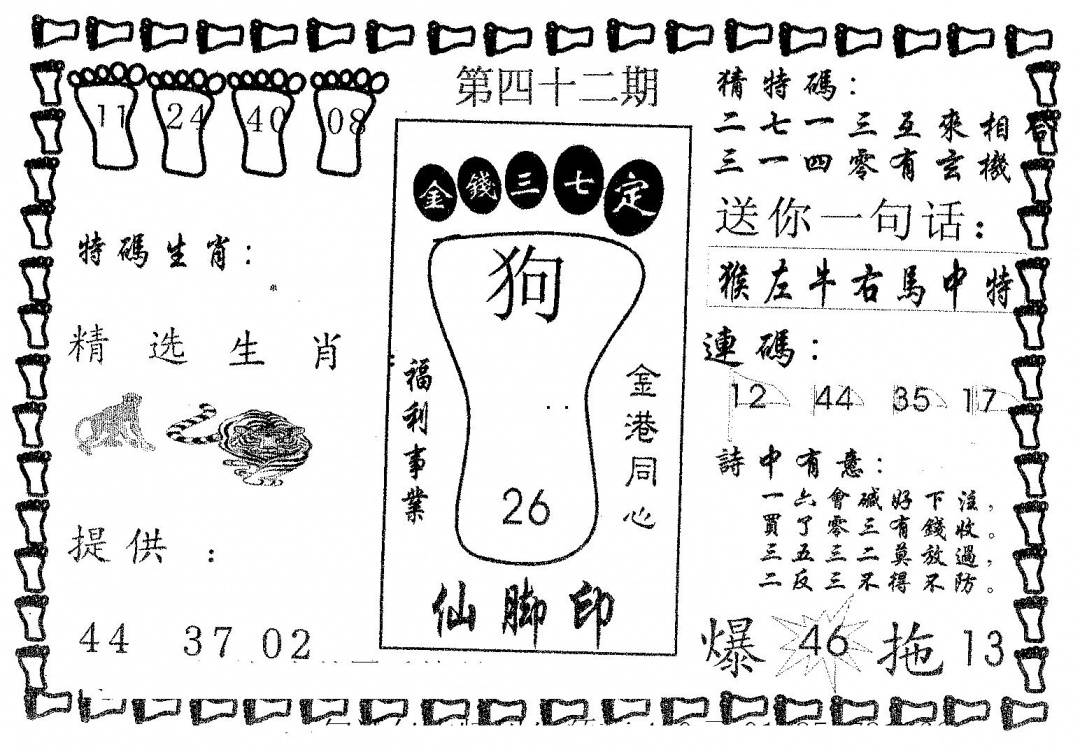 第四十二期
11 24 40 08
特碼生肖:
精选生肖:
提供:
44 37 02
金錢三七定
狗
26
福利事業
金港同心
仙脚印
猜特碼:
二七一三五來相合
三一四零有玄機
送你一句话:
猴左牛右馬中特
連碼:
12 44 35 17
詩中有意:
一六會碱好下注,
買了零三有錢收。
三五三二莫放過,
二反三不得不防。
爆 46 拖 13